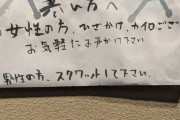 寒い方へ
女性の方、ひざかけ、カイロござ
お気軽にお声かけ下さい
男性の方、スクワットして下さい。